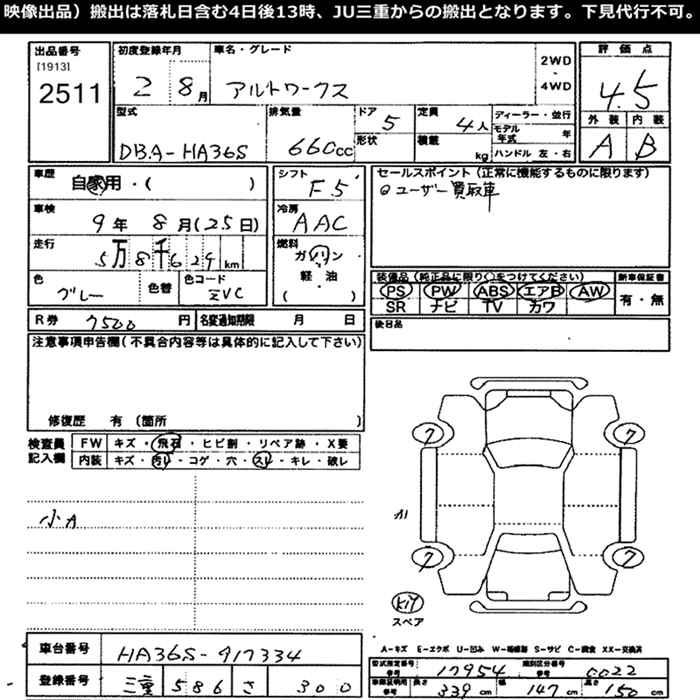 映像出品）搬出は落札日含む4日後13時、JU三重からの搬出となります。下見代行不可。
出品番号
[1913]
2511
初度登録年月
2 8月
車名・グレード
アルトワークス
2WD
・
4WD
評価点
4.5
外装 内装
A B
型式
DBA-HA36S
排気量
660cc
ドア
5
形状
定員
4人
積載
kg
ディーラー・並行
モデル年式 年
ハンドル 左・右
車歴
自家用・( )
シフト
F5
セールスポイント（正常に機能するものに限ります）
ユーザー買取車
車検
9年 8月(25日)
冷房
AAC
走行
5万8千629km
燃料
ガソリン
軽・油
( )
色
グレー
色替
色コード
ZVC
装備品（純正品に限り○をつけてください）
新車保証書
PS PW ABS エアB AW
SR ナビ TV カワ
有・無
R券 7500円
名変通知期限 月 日
後日品
注意事項申告欄（不具合内容等は具体的に記入して下さい）
修復歴 有（箇所 ）
検査員
記入欄
FW キズ・飛石・ヒビ割・リペア跡・X要
内装 キズ・汚レ・コゲ・穴・スレ・キレ・破レ
小A
7 7
A1
7 7
スペア
A-キズ E-エクボ U-凹み W-補修跡 S-サビ C-腐食 XX-交換済
車台番号 HA36S-917334
登録番号 三重 586 さ 300
型式指定番号 17954 類別区分番号 0022
長さ 339cm 幅 147cm 高さ 150cm